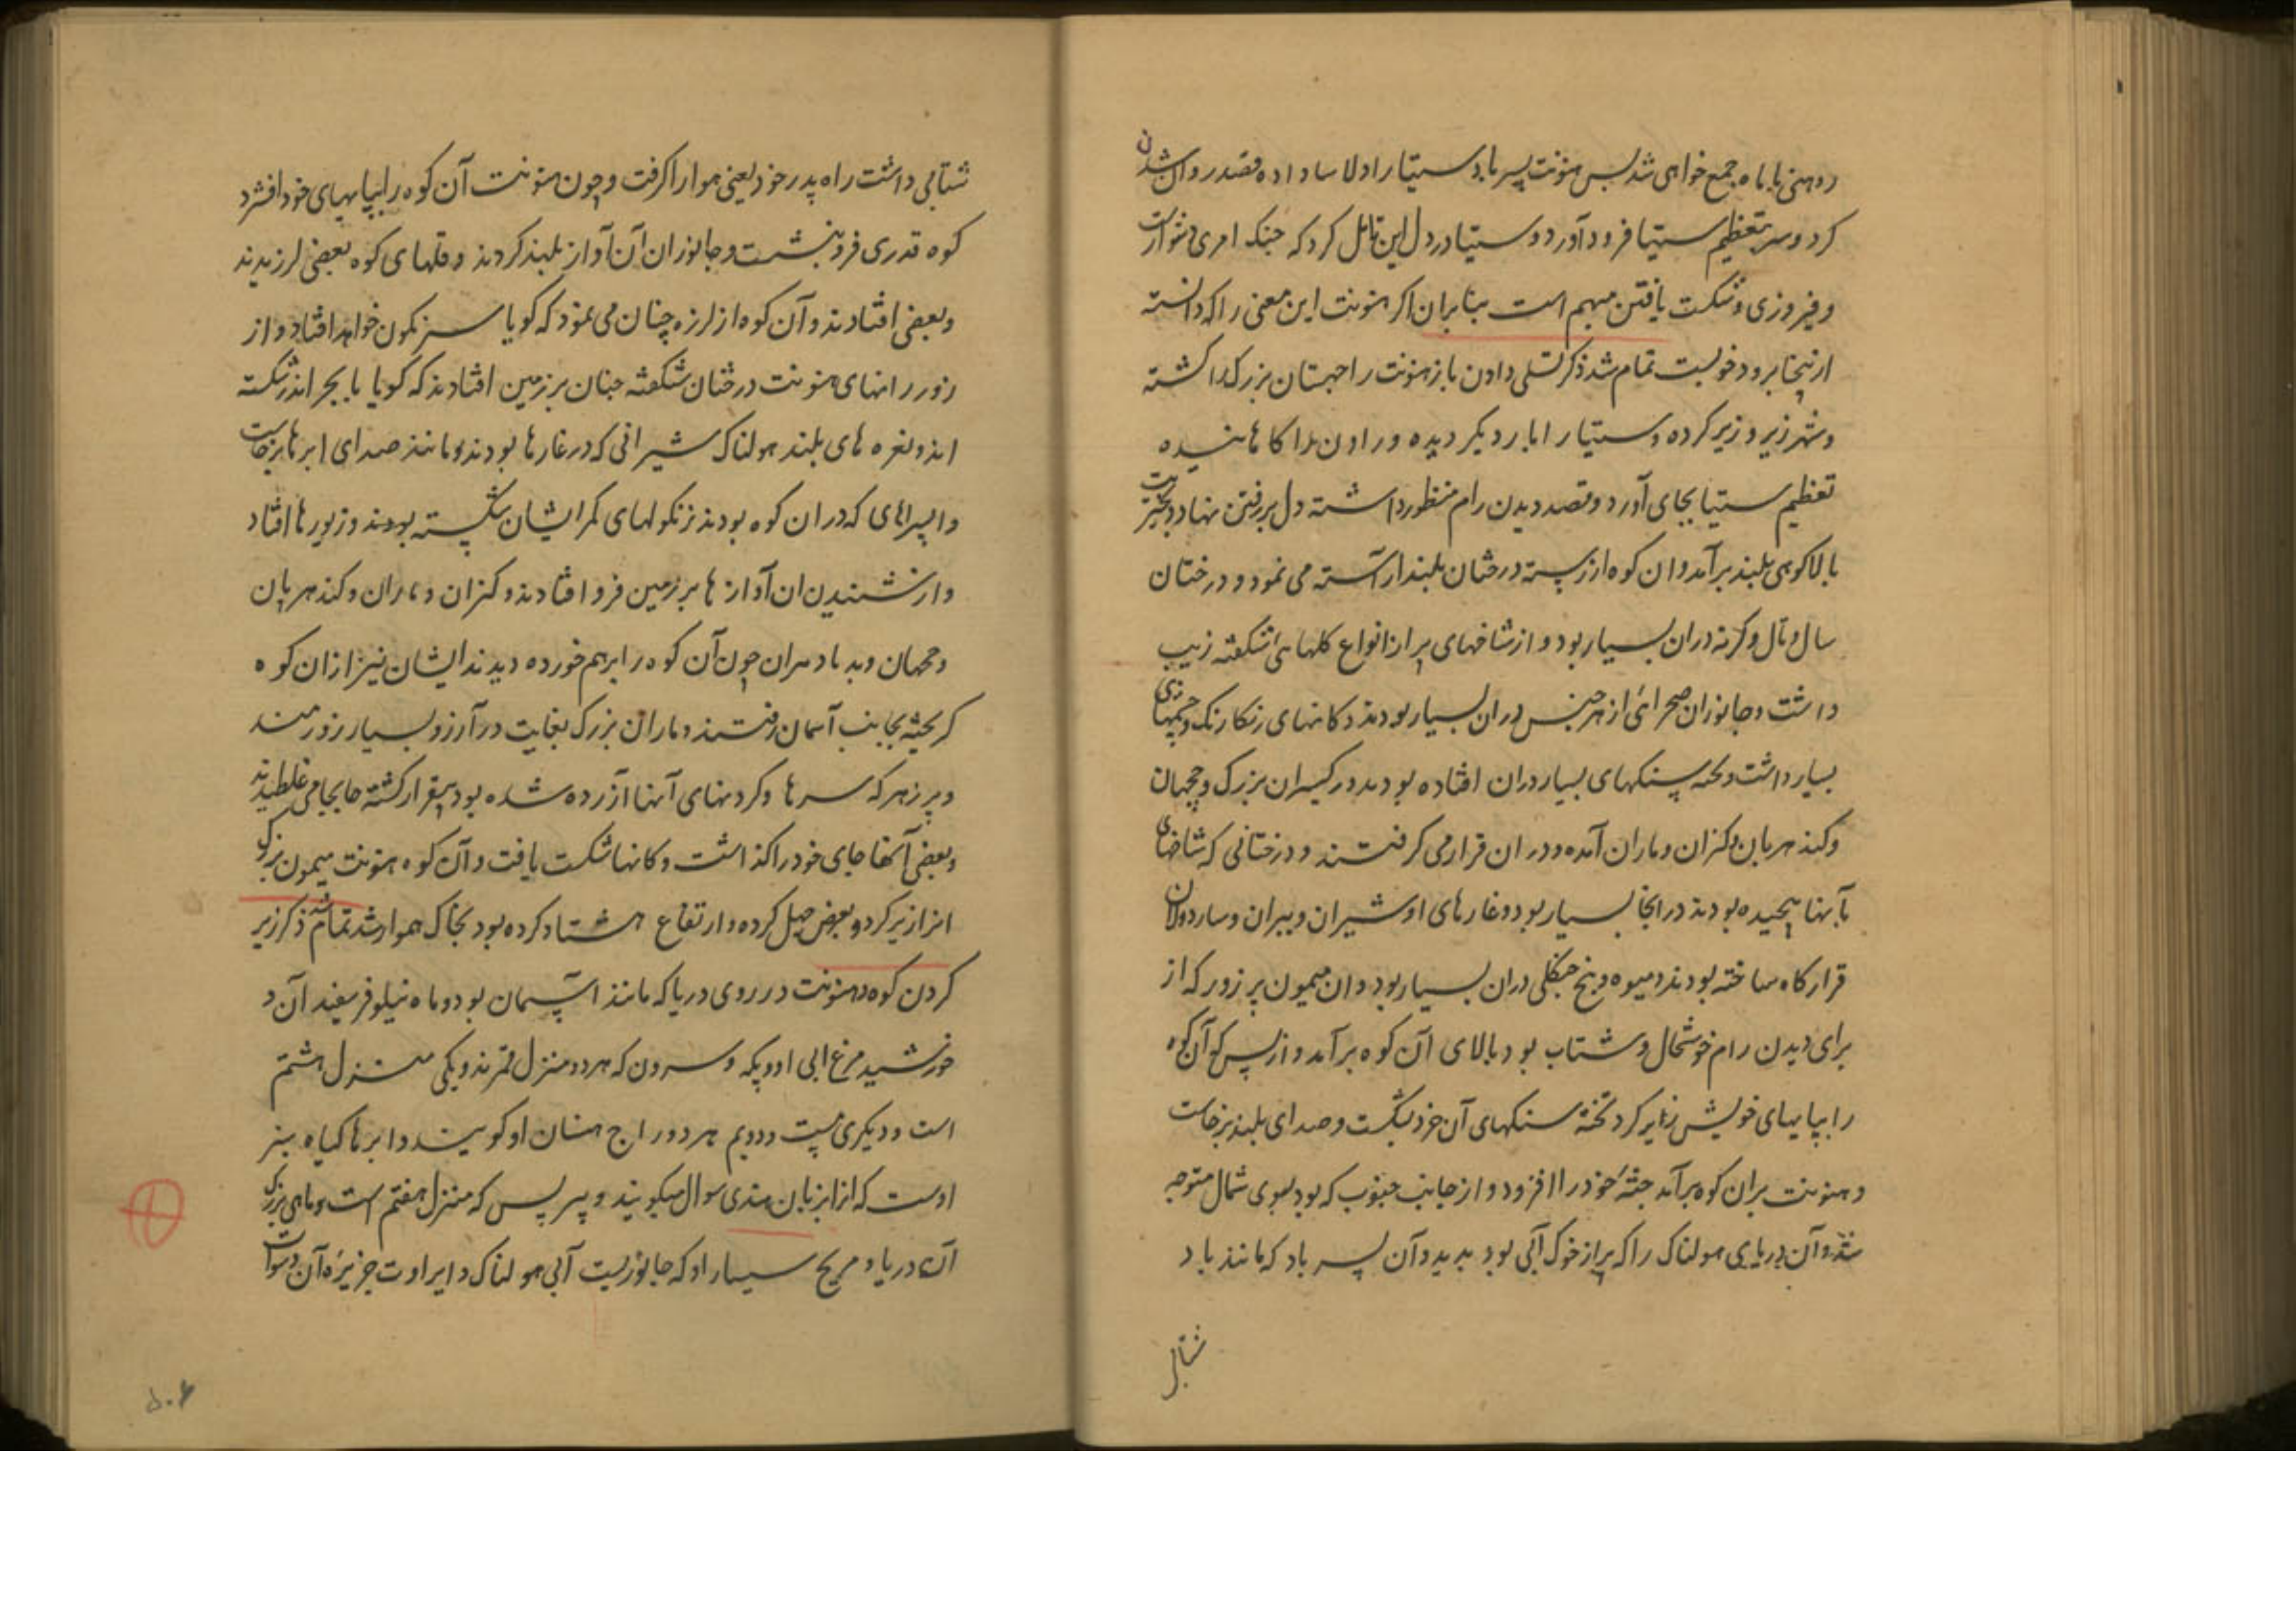 روهنی با ماه جمع خواهی شد پس هنونت پسر باد سیتا را دلاسا داده قصد روان شدن
کرد و سر بتعظیم سیتا فرود آورد و سیتا در دل این تامل کرد که جنک امری دشوار است
و فیروزی و شکست یافتن مبهم است بنا بران اکر هنونت این معنی را که دانسته
ازینجا برود خوبست تمام شد ذکر تسلی دادن باز هنونت راچهستان بزرک را کشته
و شهر زیر و زبر کرده و سیتا را بار دیکر دیده و راون را کاها نیده
تعظیم سیتا بجای آورد و قصد دیدن رام منظور داشته دل بر رفتن نهاد و
بالا کوهی بلند برآمد و ان کوه از رسته درختان بلند آراسته می نمود و درختان
سال و تال و کرنه دران بسیار بود و از شاخهای پر از انواع کلهای شکفته زیب
داشت و جانوران صحرائی از هر جنس دران بسیار بودند و کانهای رنکا رنک و چشمهای
بسیار داشت و تخته سنکهای بسیار دران افتاده بودند و رکیسران بزرک و جچهان
و کندهربان و کنران و ماران آمده و دران قرار می کرفتند و درختانی که شاخهای
بآنها پیچیده بودند در انجا بسیار بود و غارهای او شیران و ببران و ساردولان
قرارکاه ساخته بودند و میوه و بیخ جنکلی دران بسیار بود و ان میمون پر زور که از
برای دیدن رام خوشحال و شتاب بود بالای آن کوه برآمد و از پس که آن کوه
را بپایهای خویش زیر کرد تخته سنکهای آن خرد بشکست و صدای بلند برخاست
و هنونت بران کوه برآمد جثهٔ خود را افزود و از جانب جنوب که بود بسوی شمال متوجه
شد و آن دریای هولناک را که پر از خوک آبی بود بدید و آن پسر باد که مانند باد
شتابی
شتابی داشت راه پدر خود یعنی هوا را کرفت و چون هنونت آن کوه را بپایهای خود افشرد
کوه قدری فرو نشست و جانوران آن آواز بلند کردند و قلهای کوه بعضی لرزیدند
و بعضی افتادند و آن کوه از لرزه چنان می نمود که کویا سرنکون خواهد افتاد و از
زور رانهای هنونت درختان شکفته چنان بر زمین افتادند که کویا با بجر اندر شکسته
اند و نعره های بلند هولناک شیرانی که در غارها بودند و مانند صدای ابرها برخاست
و اپسراهای که دران کوه بودند زنکولهای کمر ایشان شکسته بودند و زیورها افتاد
و از شنیدن ان آوازها بر زمین فرو افتادند و کنران و ماران و کندهربان
و جچهان و بدیادهران چون آن کوه را برهم خورده دیدند ایشان نیز از ان کوه
کریخته بجانب آسمان رفتند و ماران بزرک بغایت دراز و بسیار زورمند
و پر زهر که سرها و کردنهای آنها آزرده شده بود بیقرار کشته جا بجا می غلطیدند
و بعضی آنها جای خود را کذاشت و کانها شکست یافت و آن کوه هنونت میمون بزرک
انرا زیر کرد و بعرض چهل کروه و ارتفاع هشتاد کروه بود بخاک هموار شد تمام شد ذکر زیر
کردن کوه و هنونت در روی دریا که مانند آسمان بود و ماه نیلوفر سفید آن و
خورشید مرغ ابی او و پکه و سرون که هر دو منزل قمرند و یکی منزل هشتم
است و دیکری بیست و دویم هر دو راج هنسان او کویند و ابرها کیاه سبز
اوست که انرا بزبان هندی سوال میکویند و پنرپس که منزل هفتم است و ماهی بزرک
آن دریا و مریخ سیسار او که جانوریست آبی هولناک و ایراوت جزیرهٔ آن و سوات
۵۰۶